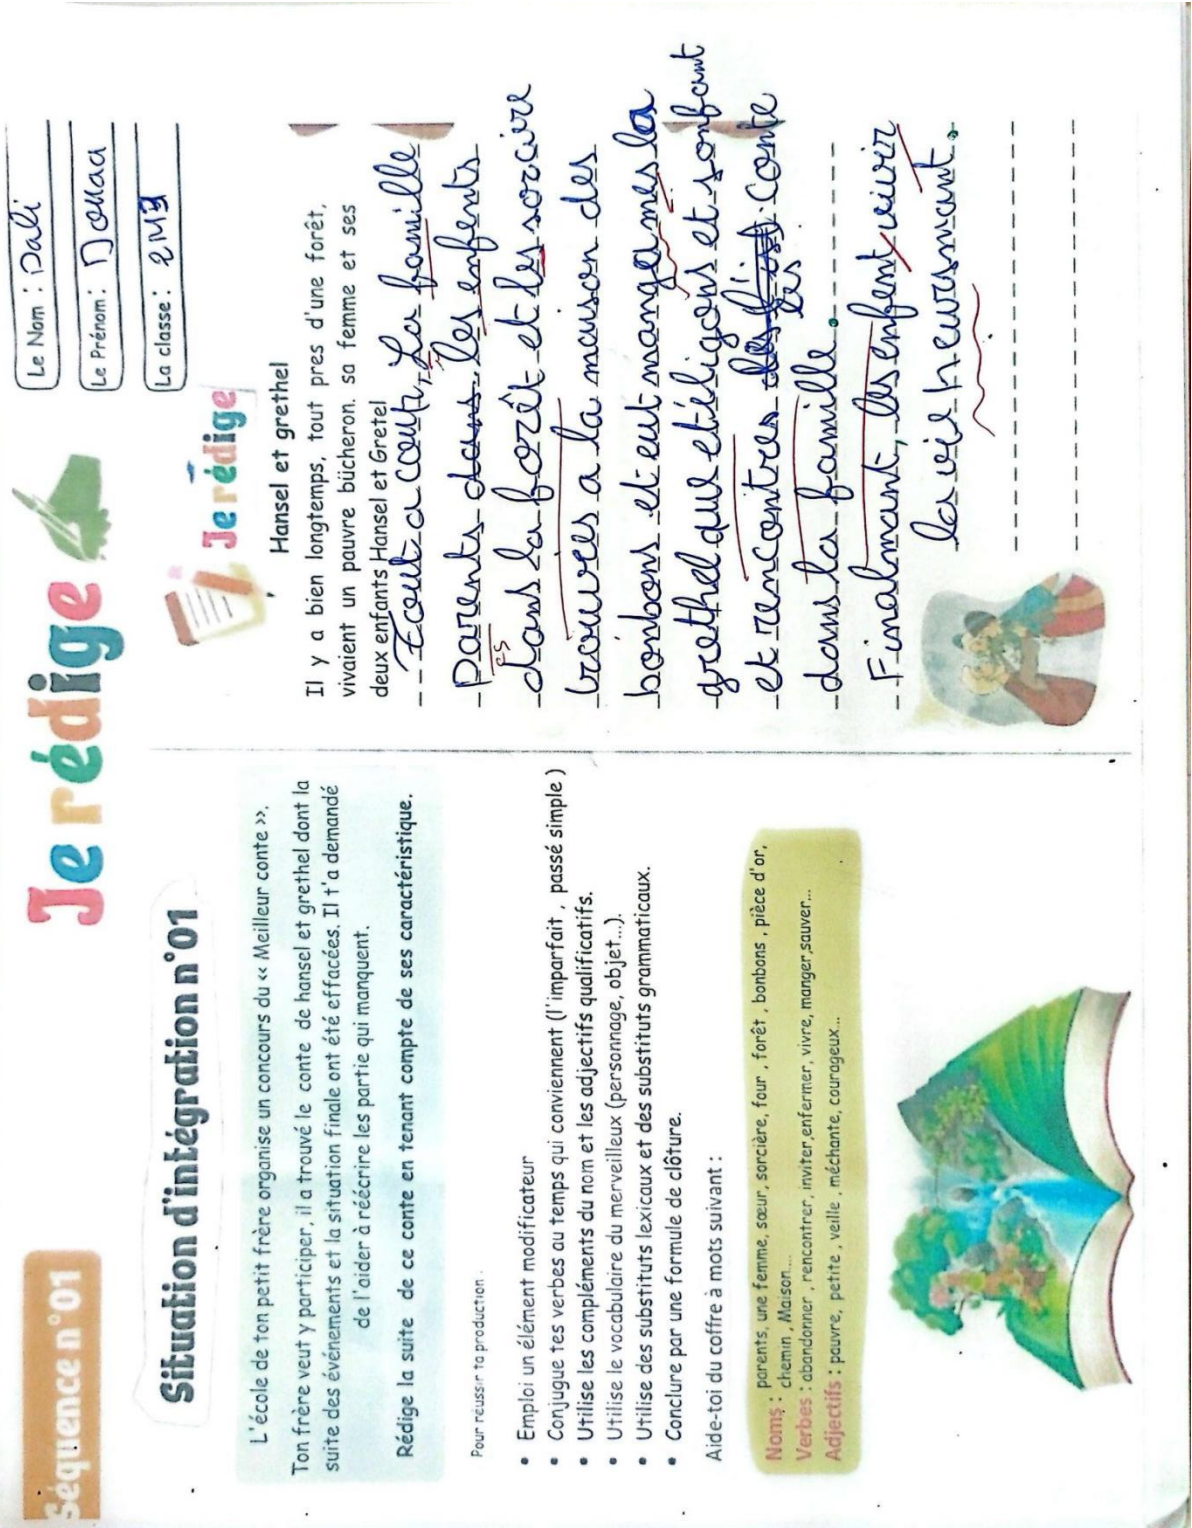 Séquence n°01
Je rédige
Le Nom : Dali
Le Prénom : Donaa
La classe : 2M3
Situation d'intégration n°01
L'école de ton petit frère organise un concours du « Meilleur conte ».
Ton frère veut y participer, il a trouvé le conte de hansel et grethel dont la
suite des événements et la situation finale ont été effacées. Il t'a demandé
de l'aider à réécrire les partie qui manquent.
Rédige la suite de ce conte en tenant compte de ses caractéristique.
Pour réussir ta production .
• Emploi un élément modificateur
• Conjugue tes verbes au temps qui conviennent (l'imparfait , passé simple )
• Utilise les compléments du nom et les adjectifs qualificatifs.
• Utilise le vocabulaire du merveilleux (personnage, objet...).
• Utilise des substituts lexicaux et des substituts grammaticaux.
• Conclure par une formule de clôture.
Aide-toi du coffre à mots suivant :
Noms : parents, une femme, sœur, sorcière, four , forêt , bonbons , pièce d'or,
chemin , Maison....
Verbes : abandonner , rencontrer, inviter,enfermer, vivre, manger,sauver...
Adjectifs : pauvre, petite , veille , méchante, courageux..
Je rédige
Hansel et grethel
Il y a bien longtemps, tout pres d'une forêt,
vivaient un pauvre bûcheron. sa femme et ses
deux enfants Hansel et Gretel
Tout a coup, La famille
Parents dans les enfents
es
dans la forêt et les sorcire
trouvres a la maison des
bonbons et eut mangames la
grethel due et éligons et sonfant
et rencontres les conte
dans la famille.
Finalmant, les enfent vivir
la vie heursmant.